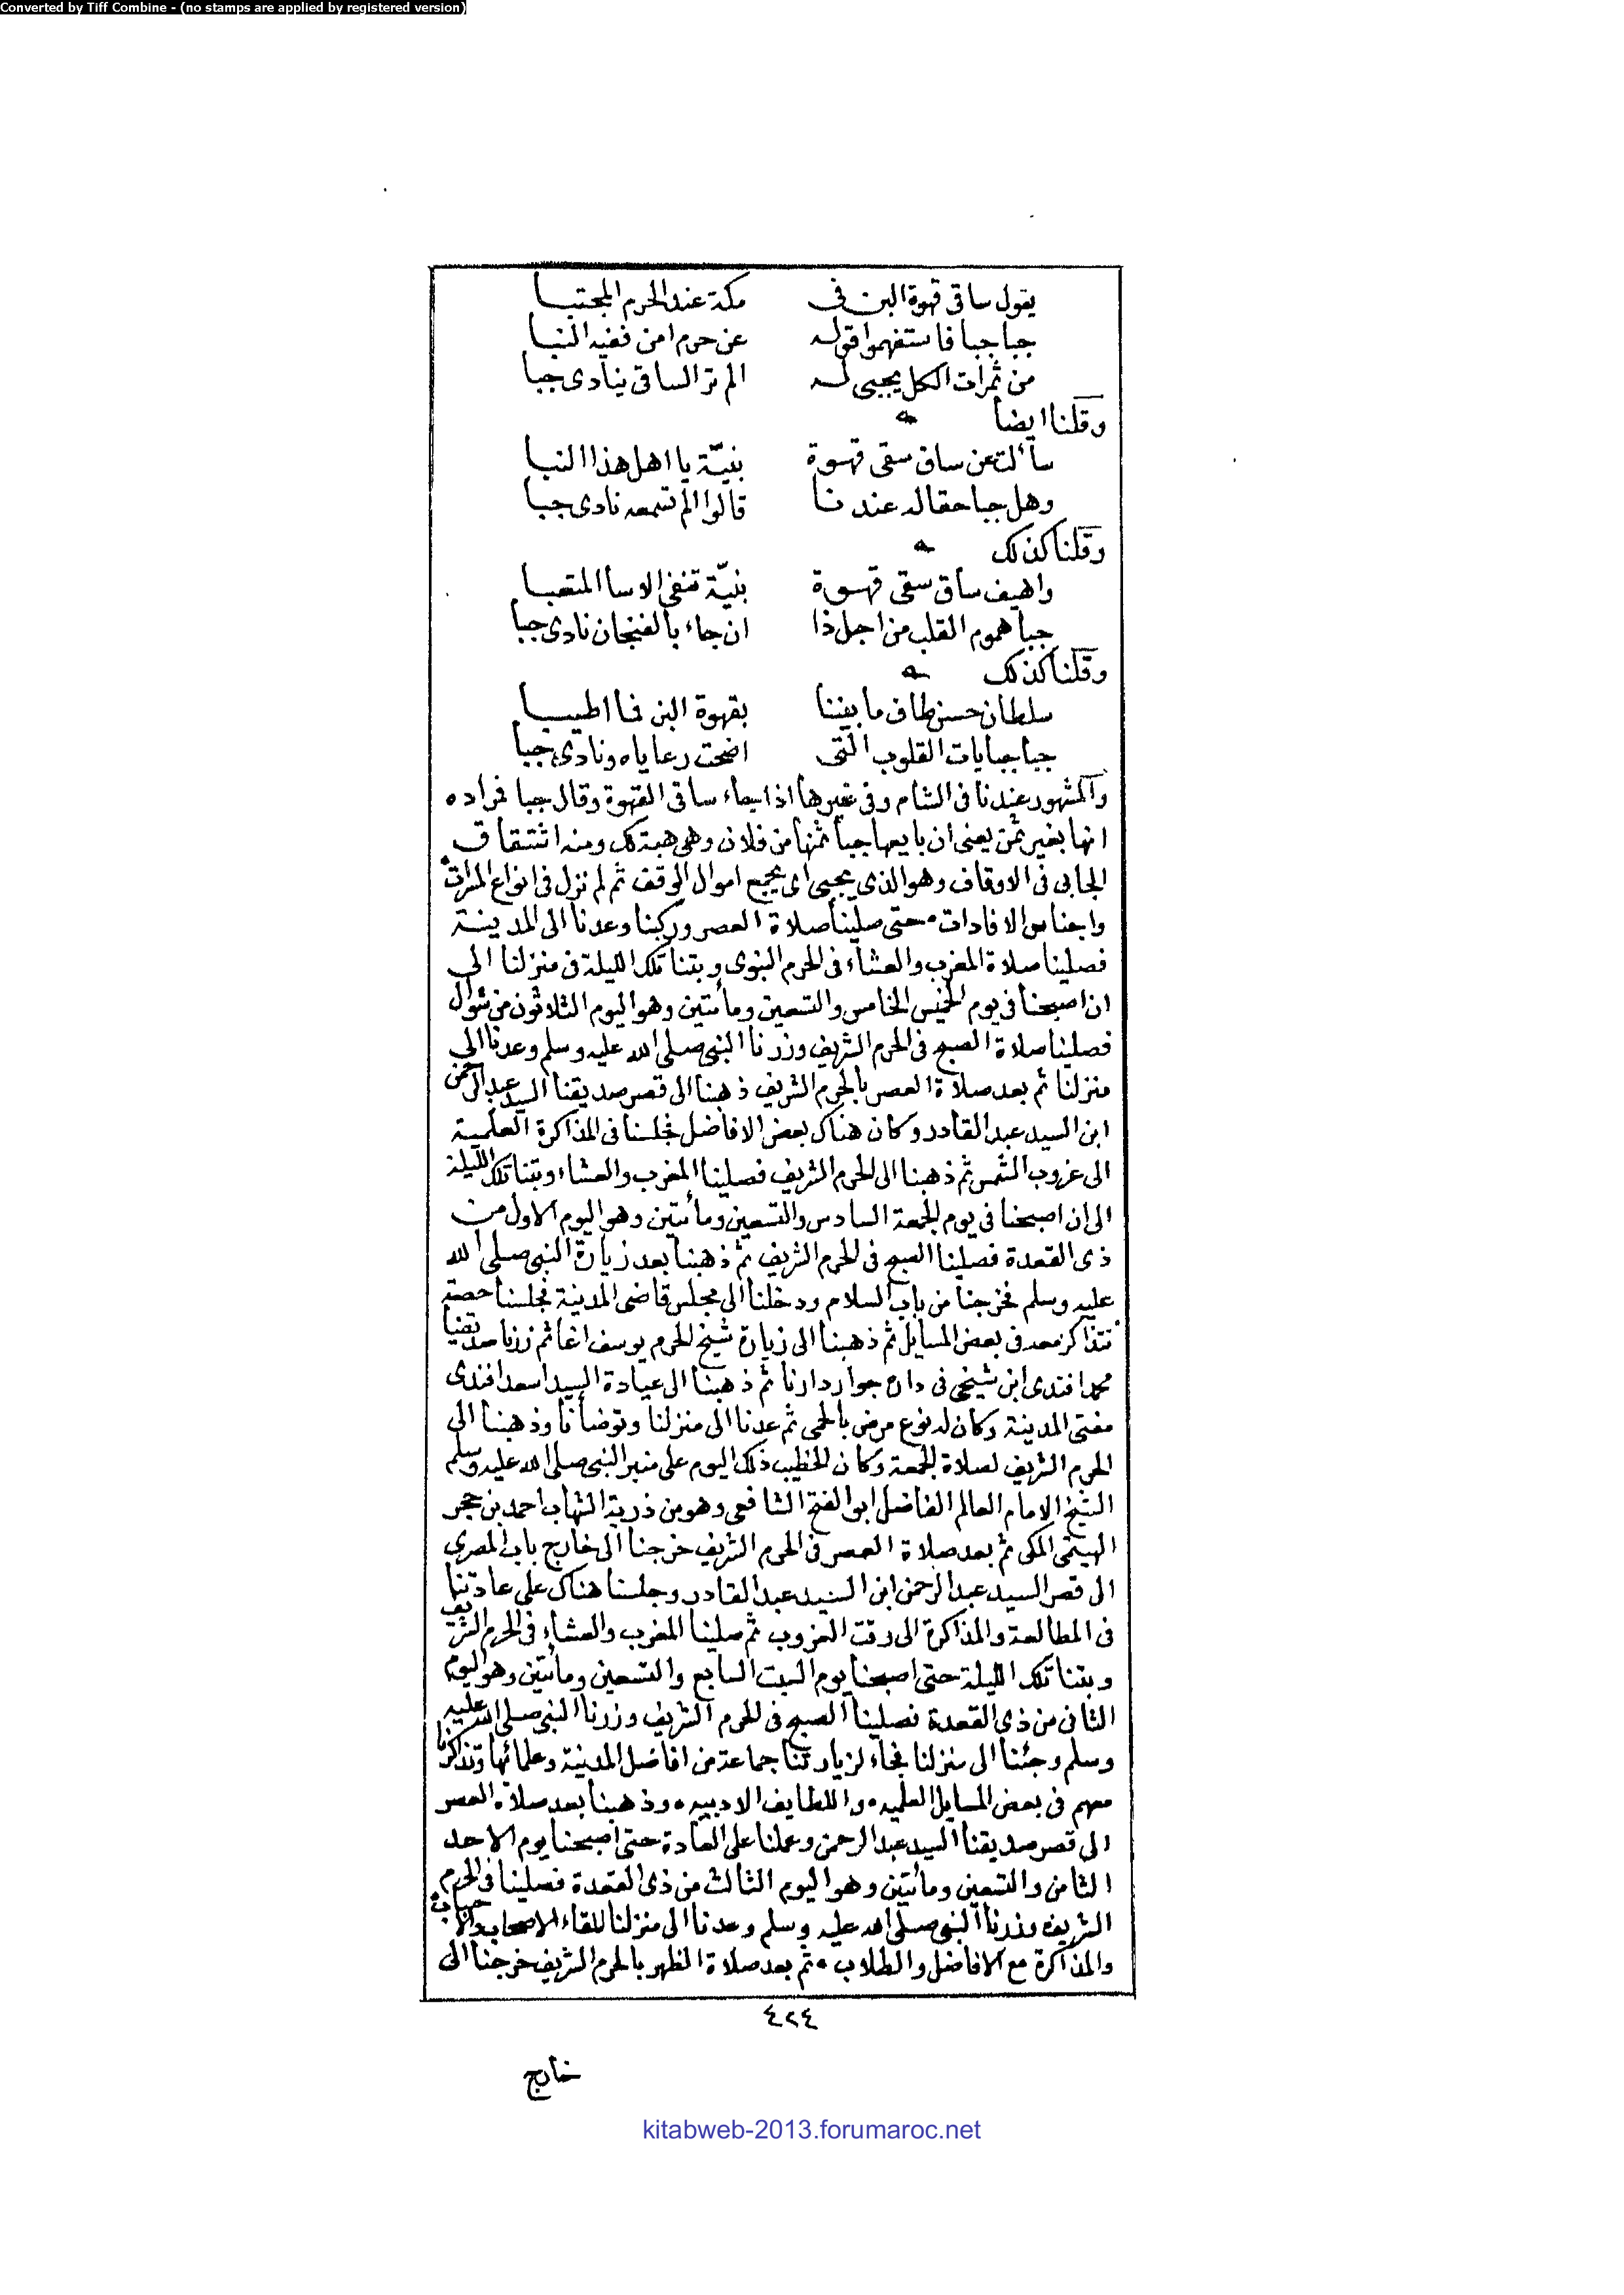 Converted by Tiff Combine - (no stamps are applied by registered version)
يقول ساقى قهوة البن فى مكة عند الحرم المجتبا
جبا جبا فاستفهموا قوله عن حرم امن ففيه النبا
من ثمرات الكل يجبى له الم تر الساقى ينادى جبا
وقلنا ايضا
سألت عن ساق سقى قهوة بنيّة يا اهل هذا النبا
وهل جبا حقاله عندنا قالوا الم تسمعه نادى جبا
وقلنا كذلك
واهيف ساق سقى قهوة بنيّة تنفى الاسا المتعبا
جبا هموم القلب من اجل ذا ان جاء بالفنجان نادى جبا
وقلنا كذلك
سلطان حسن طاف ما بيننا بقهوة البن فما اطيبا
جبا جبايات القلوب التى اضحت رعاياه ونادى جبا
والمشهور عندنا فى الشام وفى غيرها اذا جاء ساقى القهوة وقال جبا فمراده
انها بغير ثمن يعنى ان بايعها جبا ثمنها من فلان وهى هبة لك ومنه اشتقاق
الجابى فى الاوقاف وهو الذى يجبى اى يجمع اموال الوقف ثم لم نزل فى انواع المسرات
واجناس الافادات حتى صلينا صلاة العصر وركبنا وعدنا الى المدينة
فصلينا صلاة المغرب والعشاء فى الحرم النبوى وبتنا تلك الليلة فى منزلنا الى
ان اصبحنا فى يوم الخميس الخامس والتسعين ومأتين وهو اليوم الثلاثون من شوال
فصلينا صلاة الصبح فى الحرم الشريف وزرنا النبى صلى الله عليه وسلم وعدنا الى
منزلنا ثم بعد صلاة العصر بالحرم الشريف ذهبنا الى قصر صديقنا السيد عبد الرحمن
ابن السيد عبد القادر وكان هناك بعض الافاضل فجلسنا فى المذاكرة العلمية
الى غروب الشمس ثم ذهبنا الى الحرم الشريف فصلينا المغرب والعشاء وبتنا تلك الليلة
الى ان اصبحنا فى يوم الجمعة السادس والتسعين ومأتين وهو اليوم الاول من
ذى القعدة فصلينا الصبح فى الحرم الشريف ثم ذهبنا بعد زيارة النبى صلى الله
عليه وسلم فخرجنا من باب السلام ودخلنا الى مجلس قاضى المدينة فجلسنا حصة
نتذاكر معه فى بعض المسايل ثم ذهبنا الى زيارة شيخ الحرم يوسف اغا ثم زرنا صديقنا
محمد افندى ابن شيخى فى داره جوار دارنا ثم ذهبنا الى عيادة السيد اسعد افندى
مفتى المدينة وكان له نوع مرض بالحمى ثم عدنا الى منزلنا وتوضأنا وذهبنا الى
الحرم الشريف لصلاة الجمعة وكان الخطيب ذلك اليوم على منبر النبى صلى الله عليه وسلم
الشيخ الامام العالم الفاضل ابو الفتح الشافعى وهو من ذرية الشهاب احمد بن حجر
الهيتمى المكى ثم بعد صلاة العصر فى الحرم الشريف خرجنا الى خارج باب المصرى
الى قصر السيد عبد الرحمن ابن السيد عبد القادر وجلسنا هناك على عادتنا
فى المطالعة والمذاكرة الى وقت الغروب ثم صلينا المغرب والعشاء فى الحرم الشريف
وبتنا تلك الليلة حتى اصبحنا يوم السبت السابع والتسعين ومأتين وهو اليوم
الثانى من ذى القعدة فصلينا الصبح فى الحرم الشريف وزرنا النبى صلى الله عليه
وسلم وجئنا الى منزلنا فجاء لزيارتنا جماعة من افاضل المدينة وعلمائها وتذاكرنا
معهم فى بعض المسايل العلميه واللطايف الادبيه وذهبنا بعد صلاة العصر
الى قصر صديقنا السيد عبد الرحمن وعملنا على العادة حتى اصبحنا يوم الاحد
الثامن والتسعين ومأتين وهو اليوم الثالث من ذى القعدة فصلينا فى الحرم
الشريف وزرنا النبى صلى الله عليه وسلم وعدنا الى منزلنا للقاء الاصحاب والاحباب
والمذاكرة مع الافاضل والطلاب ثم بعد صلاة الظهر بالحرم الشريف خرجنا الى
٤٢٤
خارج
kitabweb-2013.forumaroc.net